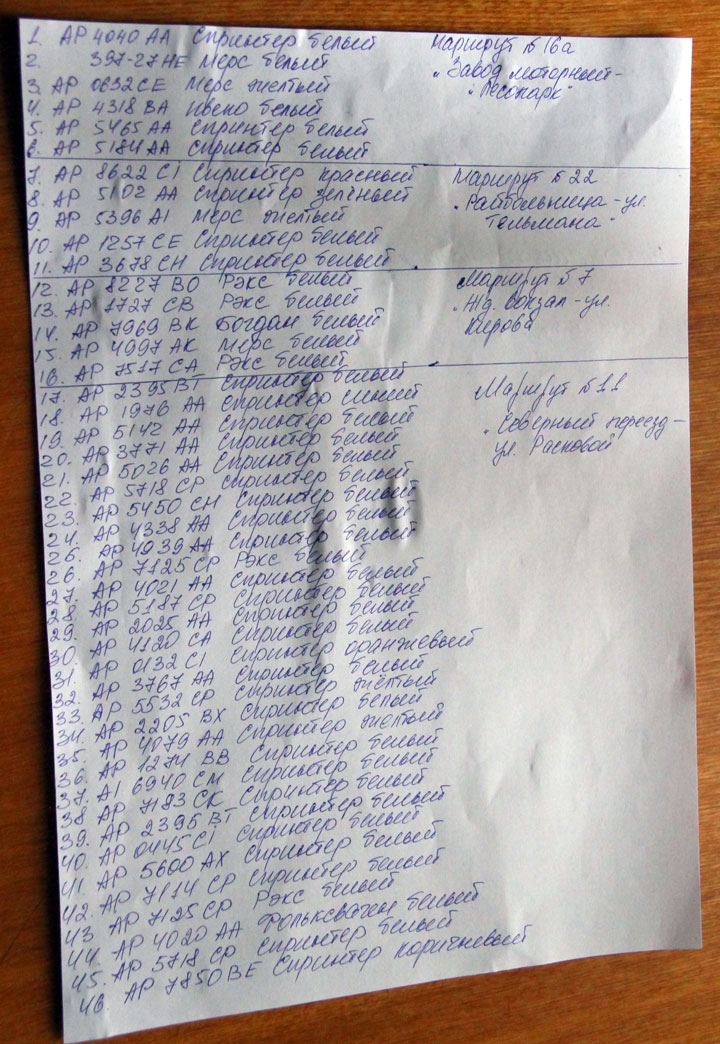 1. АР 4040 АА Спринтер белый Маршрут №16а
2. 397-27 НЕ Мерс белый "Завод моторный-
3. АР 0632 СЕ Мерс желтый "Лесопарк"
4. АР 4318 ВА Ивеко белый
5. АР 5465 АА Спринтер белый
6. АР 5184 АА Спринтер белый
7. АР 8622 СІ Спринтер красный Маршрут №22
8. АР 5102 АА Спринтер зелёный "Райбольница-ул.
9. АР 5396 АІ Мерс желтый Тельмана"
10. АР 1257 СЕ Спринтер белый
11. АР 3678 СН Спринтер белый
12. АР 8227 ВО Рэкс белый Маршрут №7
13. АР 1727 СВ Рэкс белый "Жд. вокзал-ул.
14. АР 7969 ВК Богдан белый Кирова
15. АР 4997 АК Мерс белый
16. АР 7517 СА Рэкс белый
17. АР 2395 ВТ Спринтер белый Маршрут №11
18. АР 1976 АА Спринтер синий "Северный переезд-
19. АР 5142 АА Спринтер белый ул. Расковой
20. АР 3771 АА Спринтер белый
21. АР 5026 АА Спринтер белый
22. АР 5718 СР Спринтер белый
23. АР 5450 СН Спринтер белый
24. АР 4338 АА Спринтер белый
25. АР 4939 АА Спринтер белый
26. АР 7125 СР Рэкс белый
27. АР 4021 АА Спринтер белый
28. АР 5187 СР Спринтер белый
29. АР 2025 АА Спринтер белый
30. АР 4120 СА Спринтер белый
31. АР 0132 СІ Спринтер оранжевый
32. АР 3767 АА Спринтер белый
33. АР 5532 СР Спринтер жёлтый
34. АР 2205 ВХ Спринтер белый
35. АР 4079 АА Спринтер желтый
36. АР 1274 ВВ Спринтер белый
37. АІ 6940 СМ Спринтер белый
38. АР 7183 СК Спринтер белый
39. АР 2395 ВТ Спринтер белый
40. АР 0445 СІ Спринтер белый
41. АР 5600 АХ Спринтер белый
42. АР 7114 СР Спринтер белый
43. АР 7125 СР Рэкс белый
44. АР 4020 АА Фольксваген белый
45. АР 5718 СР Спринтер белый
46. АР 7850 ВЕ Спринтер коричневый